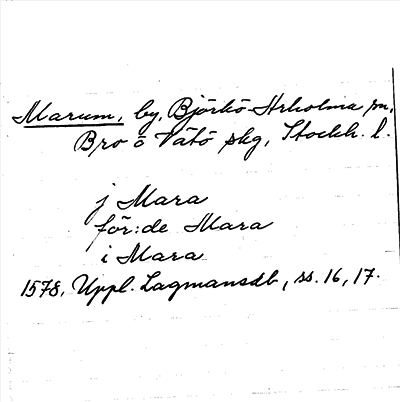 Marum, by, Björkö-Arholma sn,
Bro o Vätö skg, Stockh. l.
j Mara
för:de Mara
i Mara
1578. Uppl. Lagmansdb, ss. 16, 17.